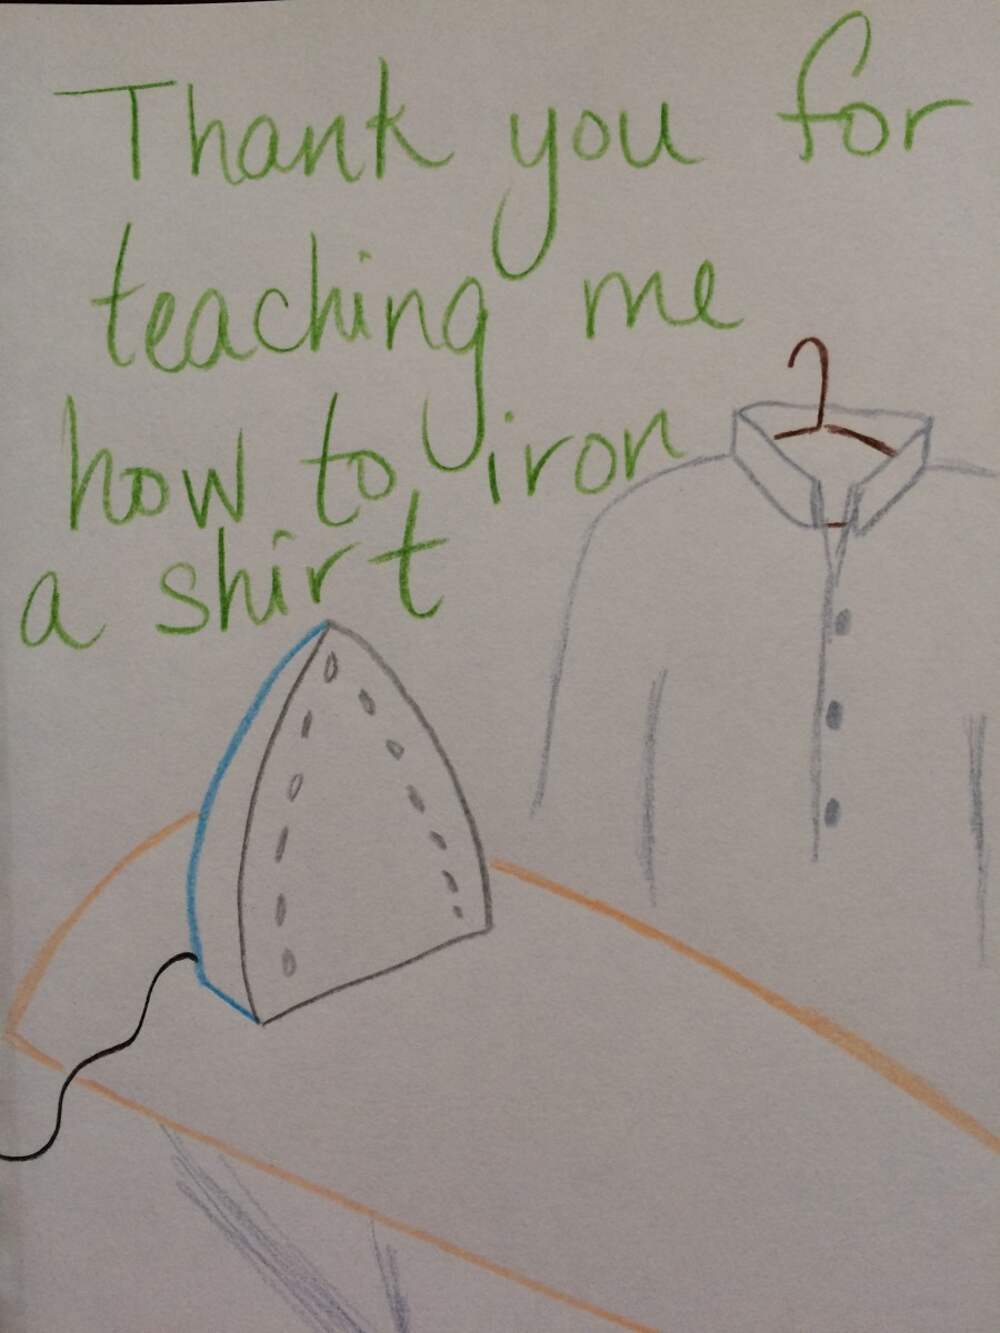 Thank you for
teaching me
how to iron
a shirt